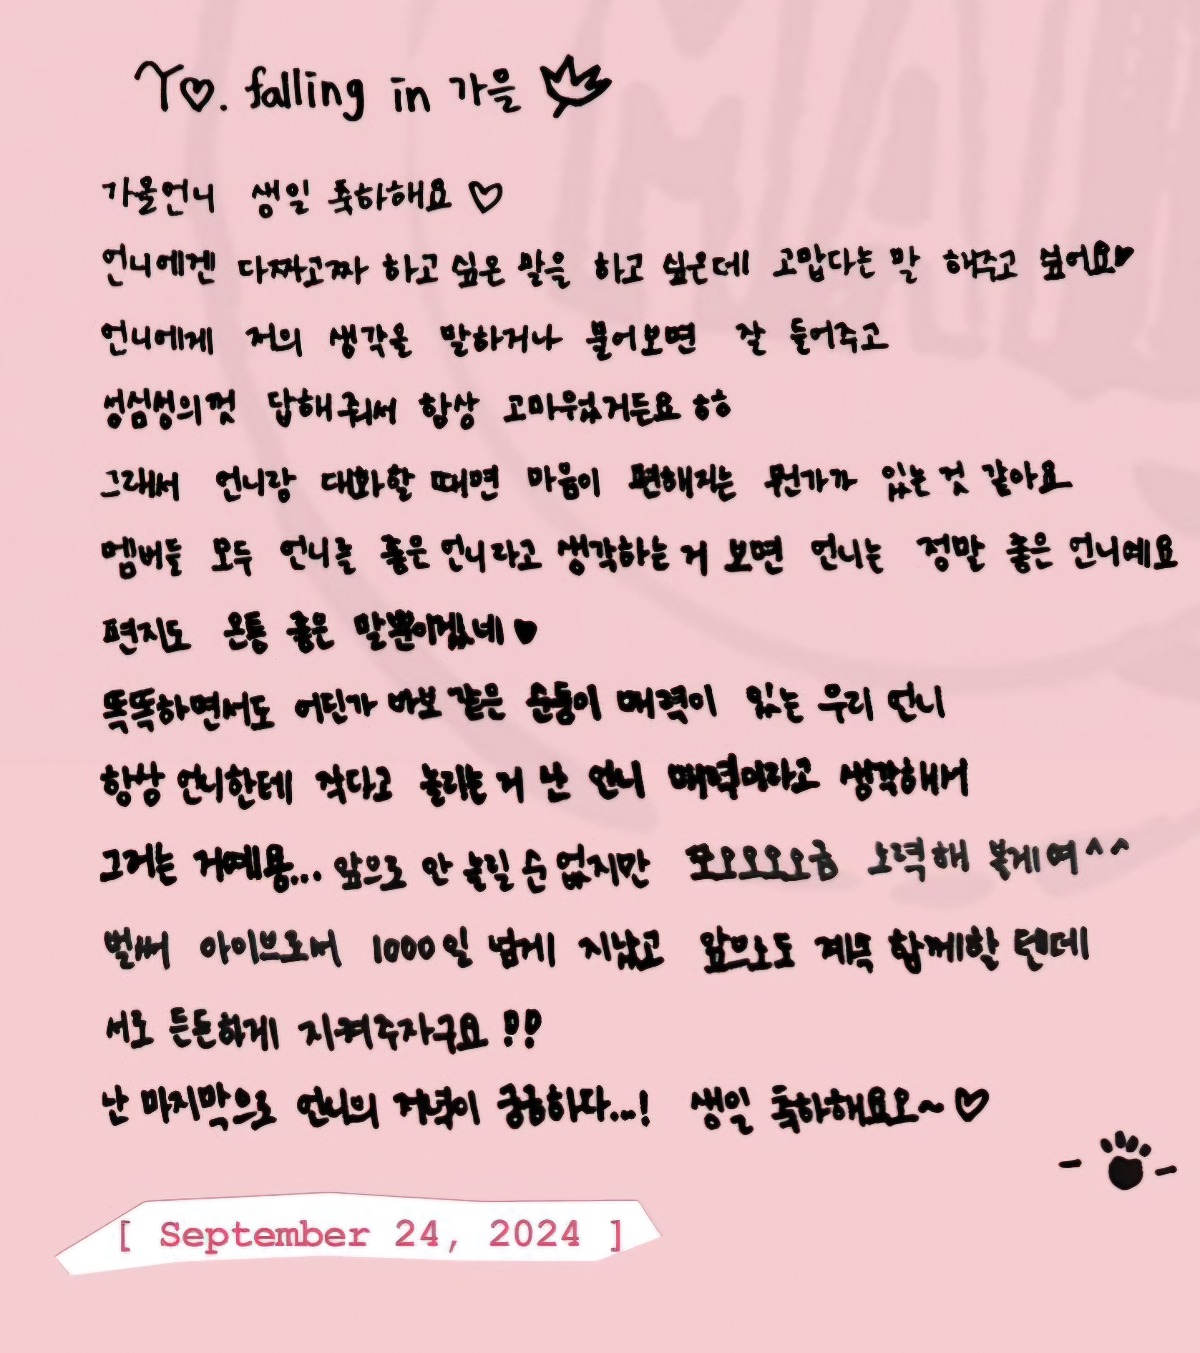 To. falling in 가을
가을언니 생일 축하해요 ♡
언니에겐 다짜고짜 하고 싶은 말을 하고 싶은데 고맙다는 말 해주고 싶어요♥
언니에게 저의 생각을 말하거나 물어보면 잘 들어주고
성심성의껏 답해줘서 항상 고마웠거든요 ㅎㅎ
그래서 언니랑 대화할 때면 마음이 편해지는 뭔가가 있는 것 같아요
멤버들 모두 언니를 좋은 언니라고 생각하는 거 보면 언니는 정말 좋은 언니예요
편지도 온통 좋은 말뿐이겠네 ♥
똑똑하면서도 어딘가 바보 같은 순둥이 매력이 있는 우리 언니
항상 언니한테 작다고 놀리는 거 난 언니 매력이라고 생각해서
그러는 거예용... 앞으로 안 놀릴 순 없지만 모오오오오금 노력해 볼게여^^
벌써 아이브로써 1000일 넘게 지났고 앞으로도 계속 함께할 텐데
서로 든든하게 지켜주자구요 !!
난 마지막으로 언니의 저녁이 궁금하다...! 생일 축하해요오~♡
[ September 24, 2024 ]